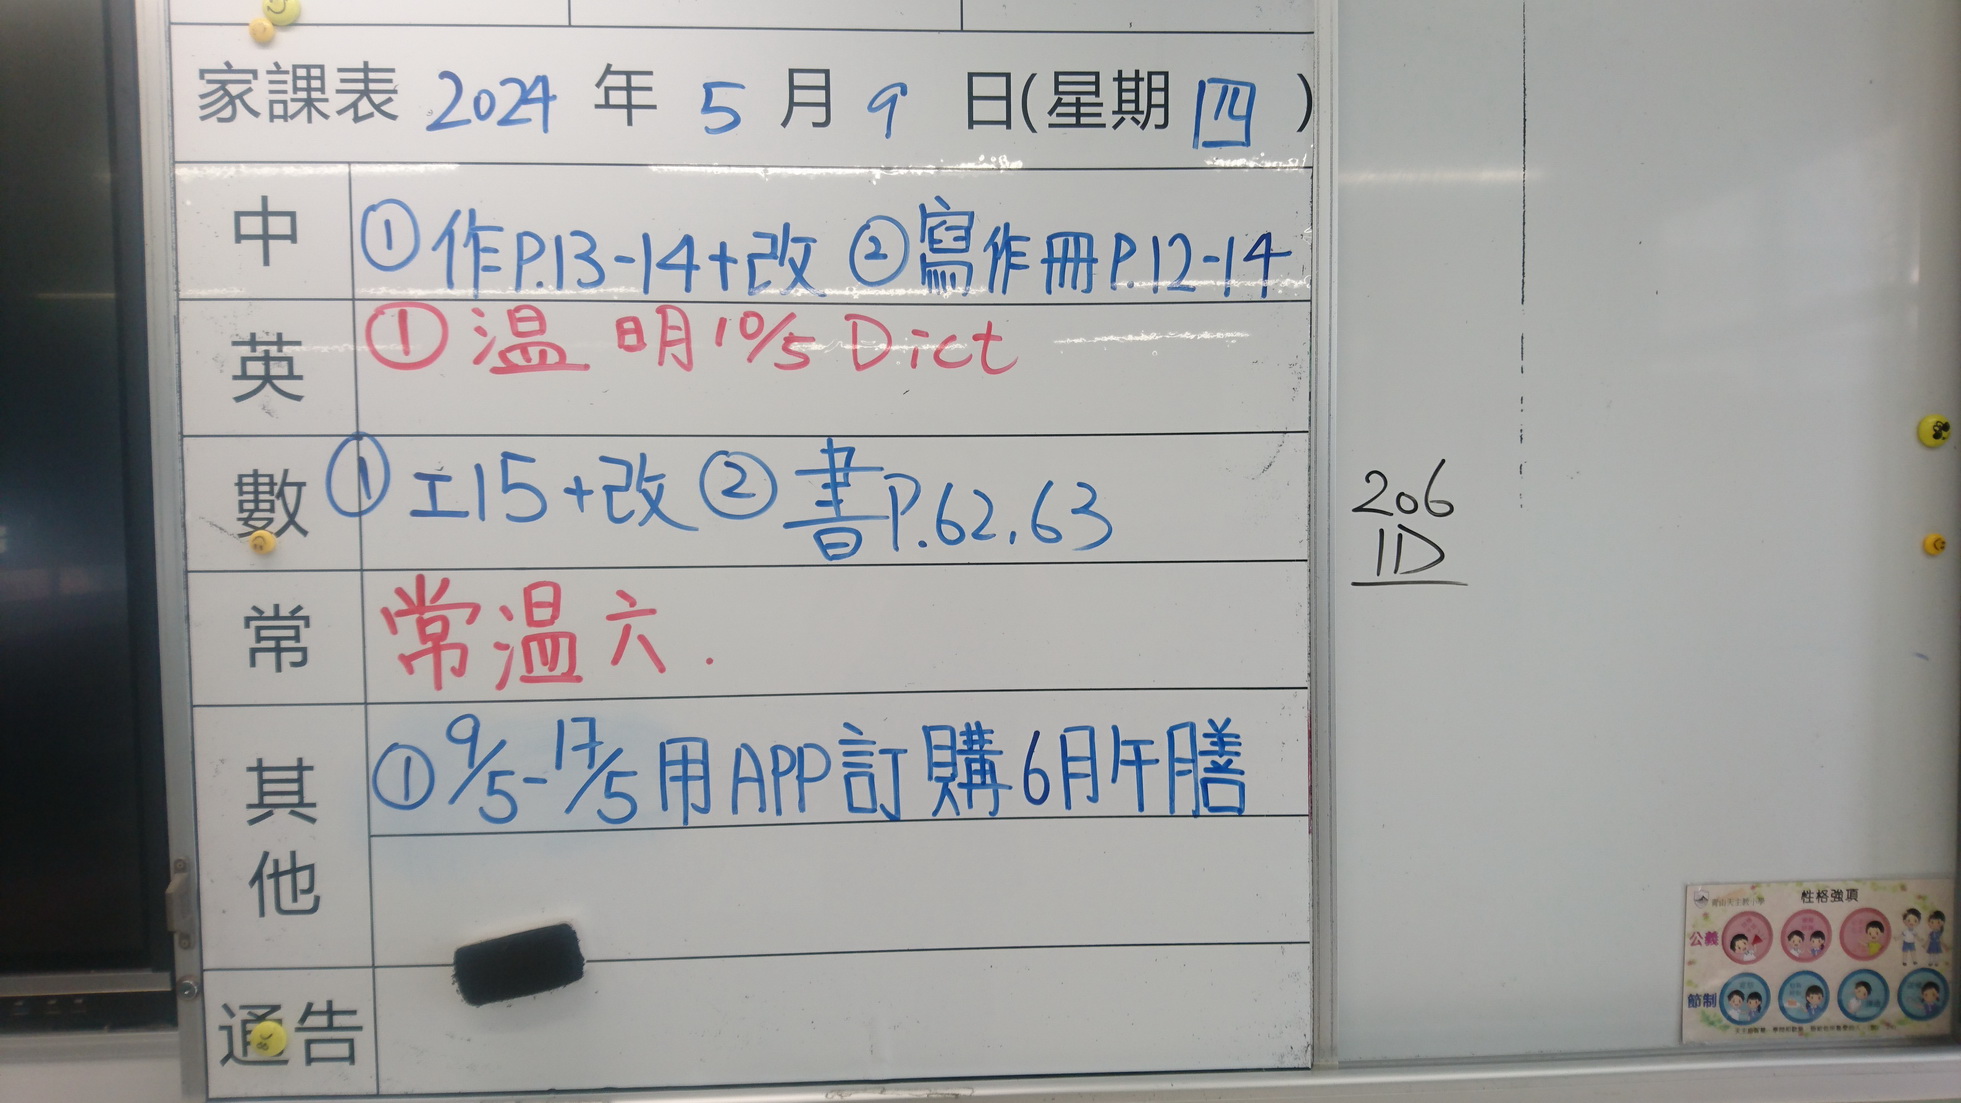 家課表 2024 年 5 月 9 日(星期 四 )
中 ①作P.13-14+改 ②寫作冊P.12-14
英 ①温 明10/5 Dict
數 ①工15+改 ②書P.62,63
常 常温六.
其他 ①9/5-17/5用APP訂購6月午膳
通告
206
1D
性格強項
公義
節制